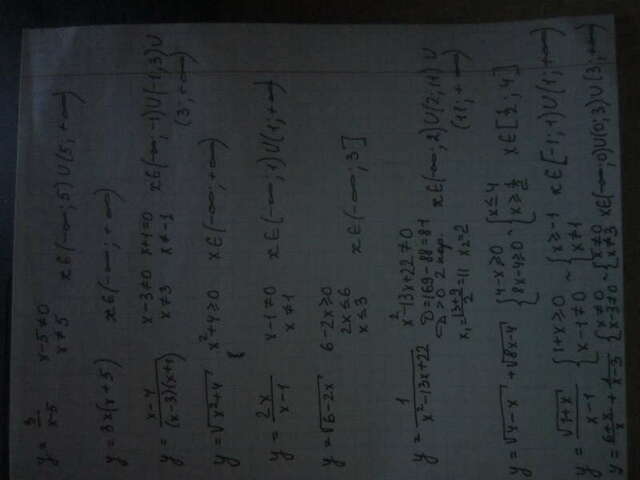 y = 3/(x-5)   x-5≠0   x≠5   x∈(-∞; 5)∪(5; +∞)
y = 3x(x+5)   x∈(-∞; +∞)
y = (x-4)/((x-3)(x+1))   x-3≠0   x+1=0   x≠3   x≠-1   x∈(-∞; -1)∪(-1; 3)∪
(3; +∞)
y = √(x²+4)   x²+4≥0   x∈(-∞; +∞)
y = 2x/(x-1)   x-1≠0   x≠1   x∈(-∞; 1)∪(1; +∞)
y = √(6-2x)   6-2x≥0
2x≤6
x≤3   x∈(-∞; 3]
y = 1/(x²-13x+22)   x²-13x+22≠0
D=169-88=81
D>0 2 кор.   x∈(-∞; 2)∪(2; 11)∪
x₁=(13+9)/2=11   x₂=2   (11; +∞)
y = √(4-x) + √(8x-4)   { 4-x≥0   8x-4≥0 ~ { x≤4   x≥1/2   x∈[1/2; 4]
y = √(1+x)/(x-1)   { 1+x≥0   x-1≠0 ~ { x≥-1   x≠1   x∈[-1; 1)∪(1; +∞)
y = (6+x)/x + 1/(x-3)   { x≠0   x-3≠0 ~ { x≠0   x≠3   x∈(-∞; 0)∪(0; 3)∪(3; +∞)